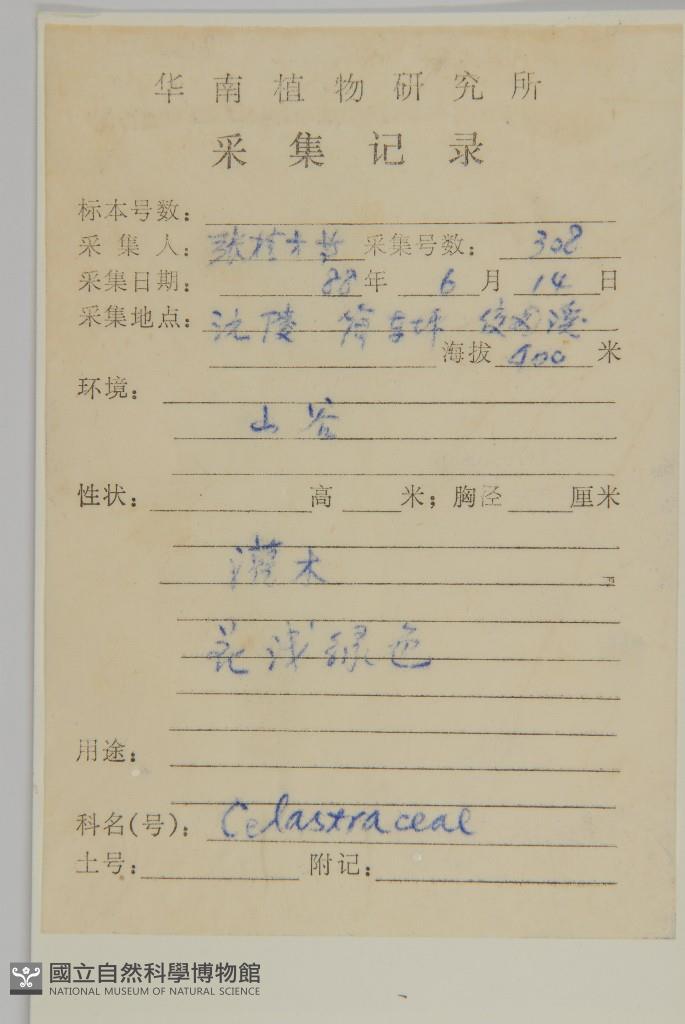 华南植物研究所
采集记录
标本号数：
采集人：张桂才 采集号数：308
采集日期：88年6月14日
采集地点：沅陵
海拔400米
环境：
山谷
性状：高 米；胸径 厘米
灌木
花浅绿色
用途：
科名(号)：Celastraceae
土号： 附记：
國立自然科學博物館
NATIONAL MUSEUM OF NATURAL SCIENCE